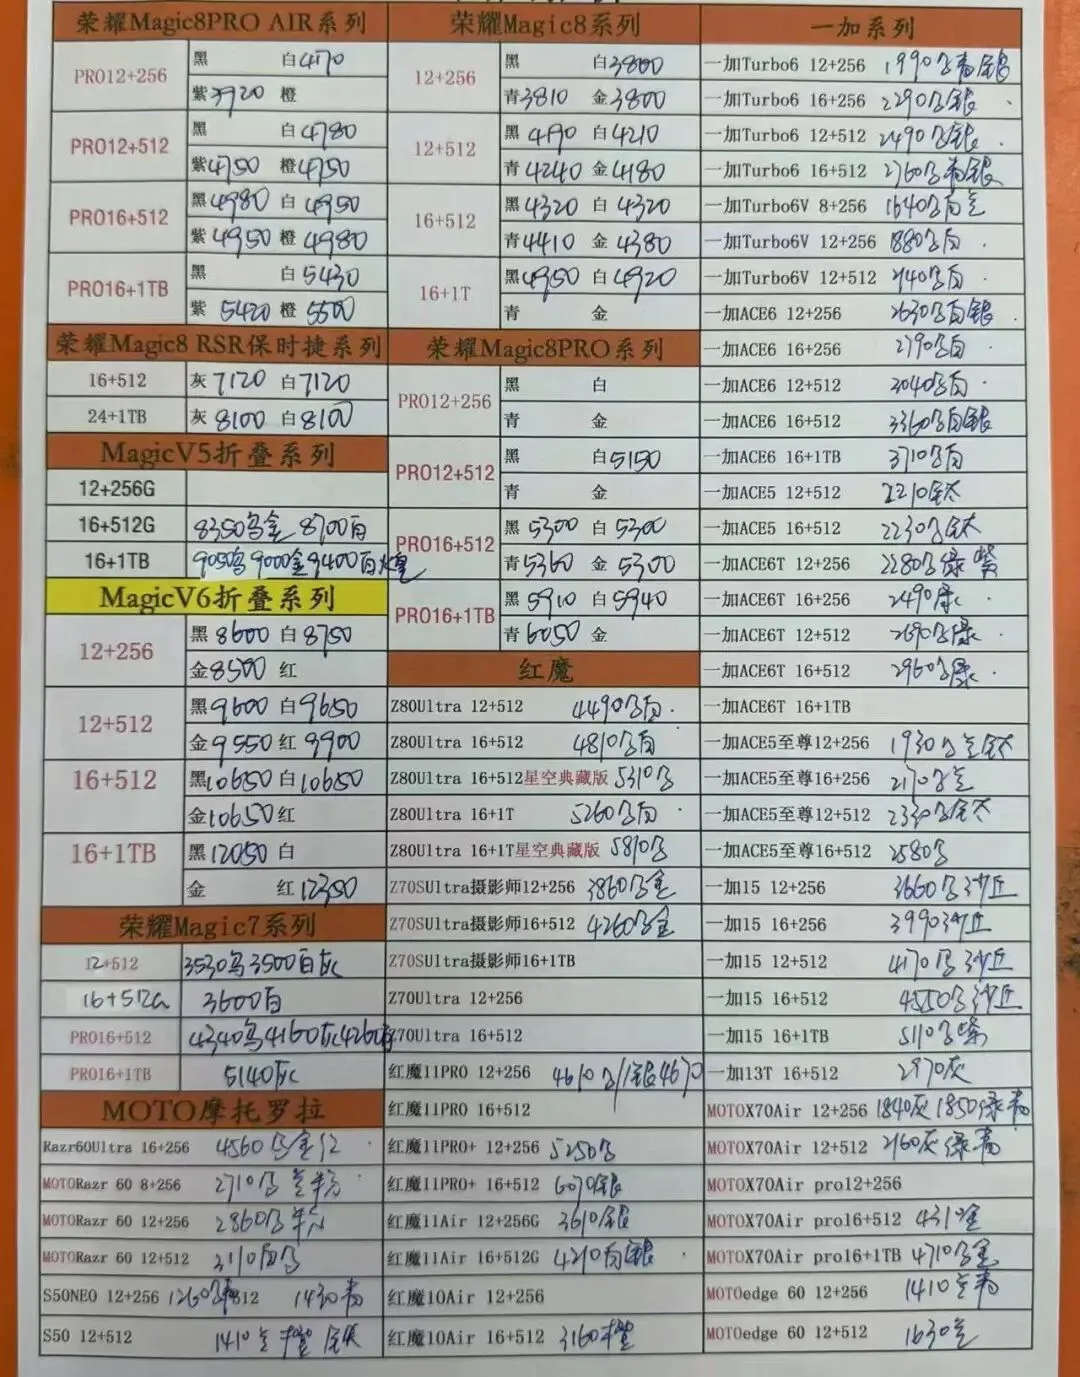 荣耀Magic8PRO AIR系列
PRO12+256 黑 白4170
紫3920 橙
PRO12+512 黑 白4780
紫4750 橙4750
PRO16+512 黑4980 白4950
紫4950 橙4980
PRO16+1TB 黑 白5430
紫5420 橙5500
荣耀Magic8 RSR保时捷系列
16+512 灰7120 白7120
24+1TB 灰8100 白8100
MagicV5折叠系列
12+256G
16+512G 8350乌金 8700白
16+1TB 9050乌9000金9400白
MagicV6折叠系列
12+256 黑8600 白8750
金8500 红
12+512 黑9600 白9650
金9550 红9900
16+512 黑10650 白10650
金10650 红
16+1TB 黑12050 白
金 红12350
荣耀Magic7系列
12+512 3530乌3500白灰
16+512G 3600白
PRO16+512 4340乌4160灰4260白
PRO16+1TB 5140灰
MOTO摩托罗拉
Razr60Ultra 16+256 4560
MOTORazr 60 8+256 2710
MOTORazr 60 12+256 2860
MOTORazr 60 12+512 3110白
S50NEO 12+256 1260 512 1430青
S50 12+512 1410兰橙银
荣耀Magic8系列
12+256 黑 白3800
青3810 金3800
12+512 黑4190 白4210
青4240 金4180
16+512 黑4320 白4320
青4410 金4380
16+1T 黑4950 白4920
青 金
荣耀Magic8PRO系列
PRO12+256 黑 白
青 金
PRO12+512 黑 白5150
青 金
PRO16+512 黑5300 白5300
青5360 金5300
PRO16+1TB 黑5910 白5940
青6050 金
红魔
Z80Ultra 12+512 4490白
Z80Ultra 16+512 4810白
Z80Ultra 16+512星空典藏版 5310
Z80Ultra 16+1T 5260白
Z80Ultra 16+1T星空典藏版 5810
Z70SUltra摄影师12+256 3860金
Z70SUltra摄影师16+512 4260金
Z70SUltra摄影师16+1TB
Z70Ultra 12+256
Z70Ultra 16+512
红魔11PRO 12+256 4610/银4670
红魔11PRO 16+512
红魔11PRO+ 12+256 5250
红魔11PRO+ 16+512 6070银
红魔11Air 12+256G 3610银
红魔11Air 16+512G 4210白银
红魔10Air 12+256
红魔10Air 16+512 3160橙
一加系列
一加Turbo6 12+256 1990青银
一加Turbo6 16+256 2290银
一加Turbo6 12+512 2490银
一加Turbo6 16+512 2760青银
一加Turbo6V 8+256 1640白兰
一加Turbo6V 12+256 1880白
一加Turbo6V 12+512 白
一加ACE6 12+256 2630白银
一加ACE6 16+256 2790白
一加ACE6 12+512 3040白
一加ACE6 16+512 3360白银
一加ACE6 16+1TB 3710白
一加ACE5 12+512 2210钛
一加ACE5 16+512 2230钛
一加ACE6T 12+256 2280绿紫
一加ACE6T 16+256 2490绿
一加ACE6T 12+512 2690绿
一加ACE6T 16+512 2960绿
一加ACE6T 16+1TB
一加ACE5至尊12+256 1930兰钛
一加ACE5至尊16+256 2170兰
一加ACE5至尊12+512 2330钛
一加ACE5至尊16+512 2580
一加15 12+256 3660沙丘
一加15 16+256 3990沙丘
一加15 12+512 4170沙丘
一加15 16+512 4550沙丘
一加15 16+1TB 5110紫
一加13T 16+512 2970灰
MOTOX70Air 12+256 1840灰 1850绿青
MOTOX70Air 12+512 2160灰绿青
MOTOX70Air pro12+256
MOTOX70Air pro16+512 4310金
MOTOX70Air pro16+1TB 4710金
MOTOedge 60 12+256 1410兰青
MOTOedge 60 12+512 1630兰